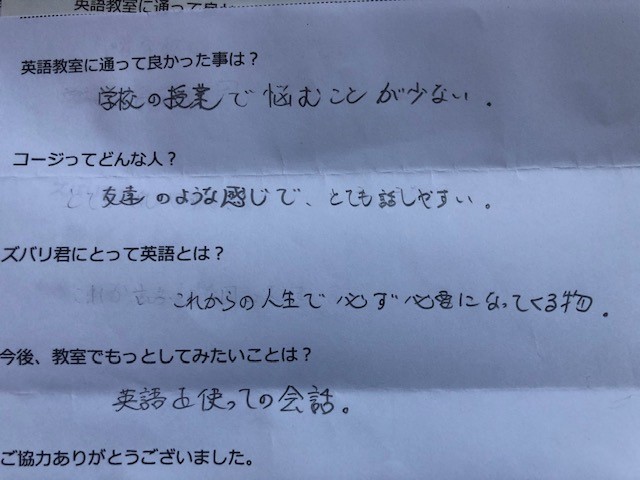 英語教室に通って良か
英語教室に通って良かった事は？
学校の授業で悩むことが少ない．
コージってどんな人？
友達のような感じで、とても話しやすい。
ズバリ君にとって英語とは？
これからの人生で必ず必要になってくる物．
今後、教室でもっとしてみたいことは？
英語を使っての会話。
ご協力ありがとうございました。